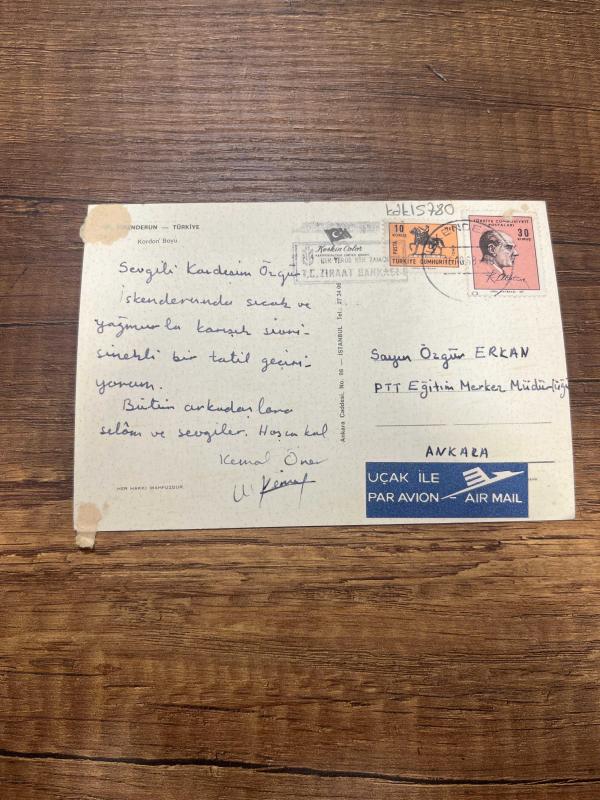 kdk15780
İSKENDERUN — TÜRKİYE
Kordon Boyu
Sevgili Kardeşim Özgür
İskenderunda sıcak ve
yağmurla karışık sivri-
sinekli bir tatil geçiri-
yorum.
Bütün arkadaşlara
selâm ve sevgiler. Hoşça kal
Kemal Öner
Kemal
HER HAKKI MAHFUZDUR
Ankara Caddesi, No. 98 — İSTANBUL Tel.: 27 34 06
Keskin Color
HER YERDE HER ZAMAN
T.C. ZİRAAT BANKASI
10
KURUŞ
POSTA
TÜRKİYE CUMHURİYETİ
TÜRKİYE CUMHURİYETİ
POSTALARI
30
KURUŞ
K. Atatürk
Sayın Özgür ERKAN
PTT Eğitim Merkez Müdürlüğü
ANKARA
UÇAK İLE
PAR AVION
AIR MAIL